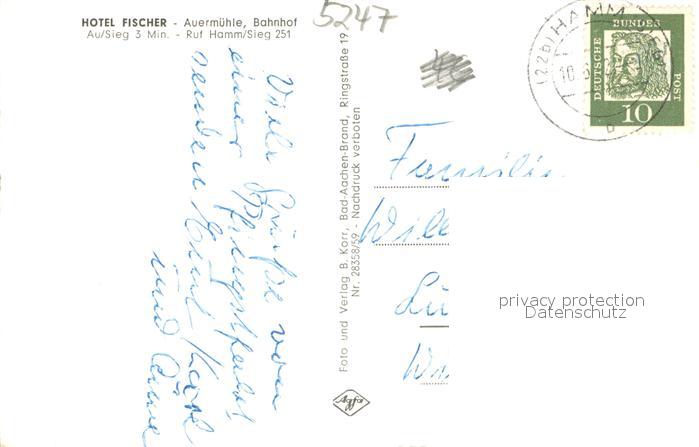 HOTEL FISCHER - Auermühle, Bahnhof
Au/Sieg 3 Min. - Ruf Hamm/Sieg 251
5247
Viele Grüße von
einer
senden
und
Foto und Verlag B. Korr, Bad-Aachen-Brand, Ringstraße 19
Nr. 28358/59 - Nachdruck verboten
Agfa
(22b) HAMM
10
b
DEUTSCHE
BUNDES
POST
10
Familie
Will
Lü
privacy protection
Datenschutz